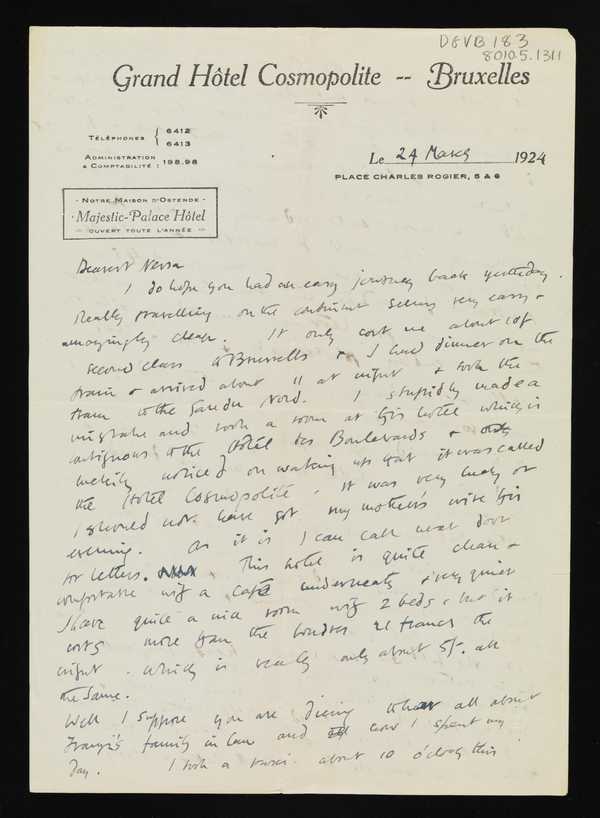 DGVB 183
8010.5.1311
Grand Hôtel Cosmopolite -- Bruxelles
TÉLÉPHONES { 6412
6413
ADMINISTRATION
& COMPTABILITÉ : 198.98
Le 24 March 1924
PLACE CHARLES ROGIER, 5 & 6
- NOTRE MAISON D'OSTENDE -
Majestic-Palace Hôtel
OUVERT TOUTE L'ANNÉE
Dearest Nessa
I do hope you had an easy journey back yesterday.
Really travelling on the continent seems very easy &
amazingly cheap. It only cost me about 10/-
second class to Brussells & I had dinner on the
train & arrived about 11 at night & took the
tram to the Gare du Nord. I stupidly made a
mistake and took a room at this hotel which is
contiguous to the Hôtel des Boulevards & only
luckily noticed on waking up that it was called
the Hotel Cosmopolite. It was very lucky or
I should not have got my mother's wire this
evening. As it is I can call next door
for letters. This hotel is quite clean &
comfortable with a Café underneath & very quiet
I have quite a nice room with 2 beds & but it
costs more than the Londres 21 francs the
night - which is really only about 5/- all
the same.
Well I suppose you are dieing to hear all about
Franzi's family in law and how I spent my
day. I took a taxi about 10 o'clock this